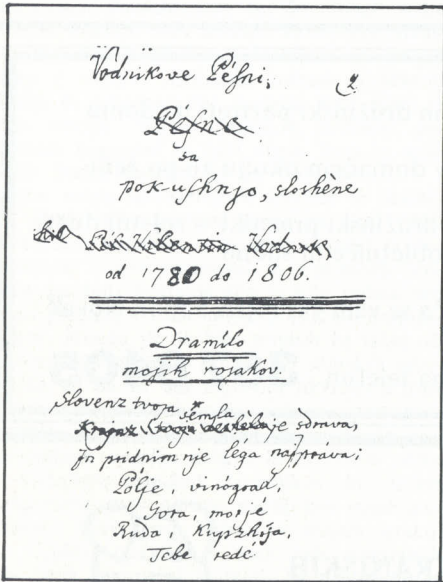 Vodnikove Pésni,
Pésme
sa
pokushnjo, sloshène
od 1780 do 1806.
Dramílo
mojih rojakov.
Slovenz tvoja semla
je sdrava,
In pridnim nje léga najprava;
Pólje, vinógrad,
Gora, morjé
Ruda, Kupzhíja,
Tebe redé